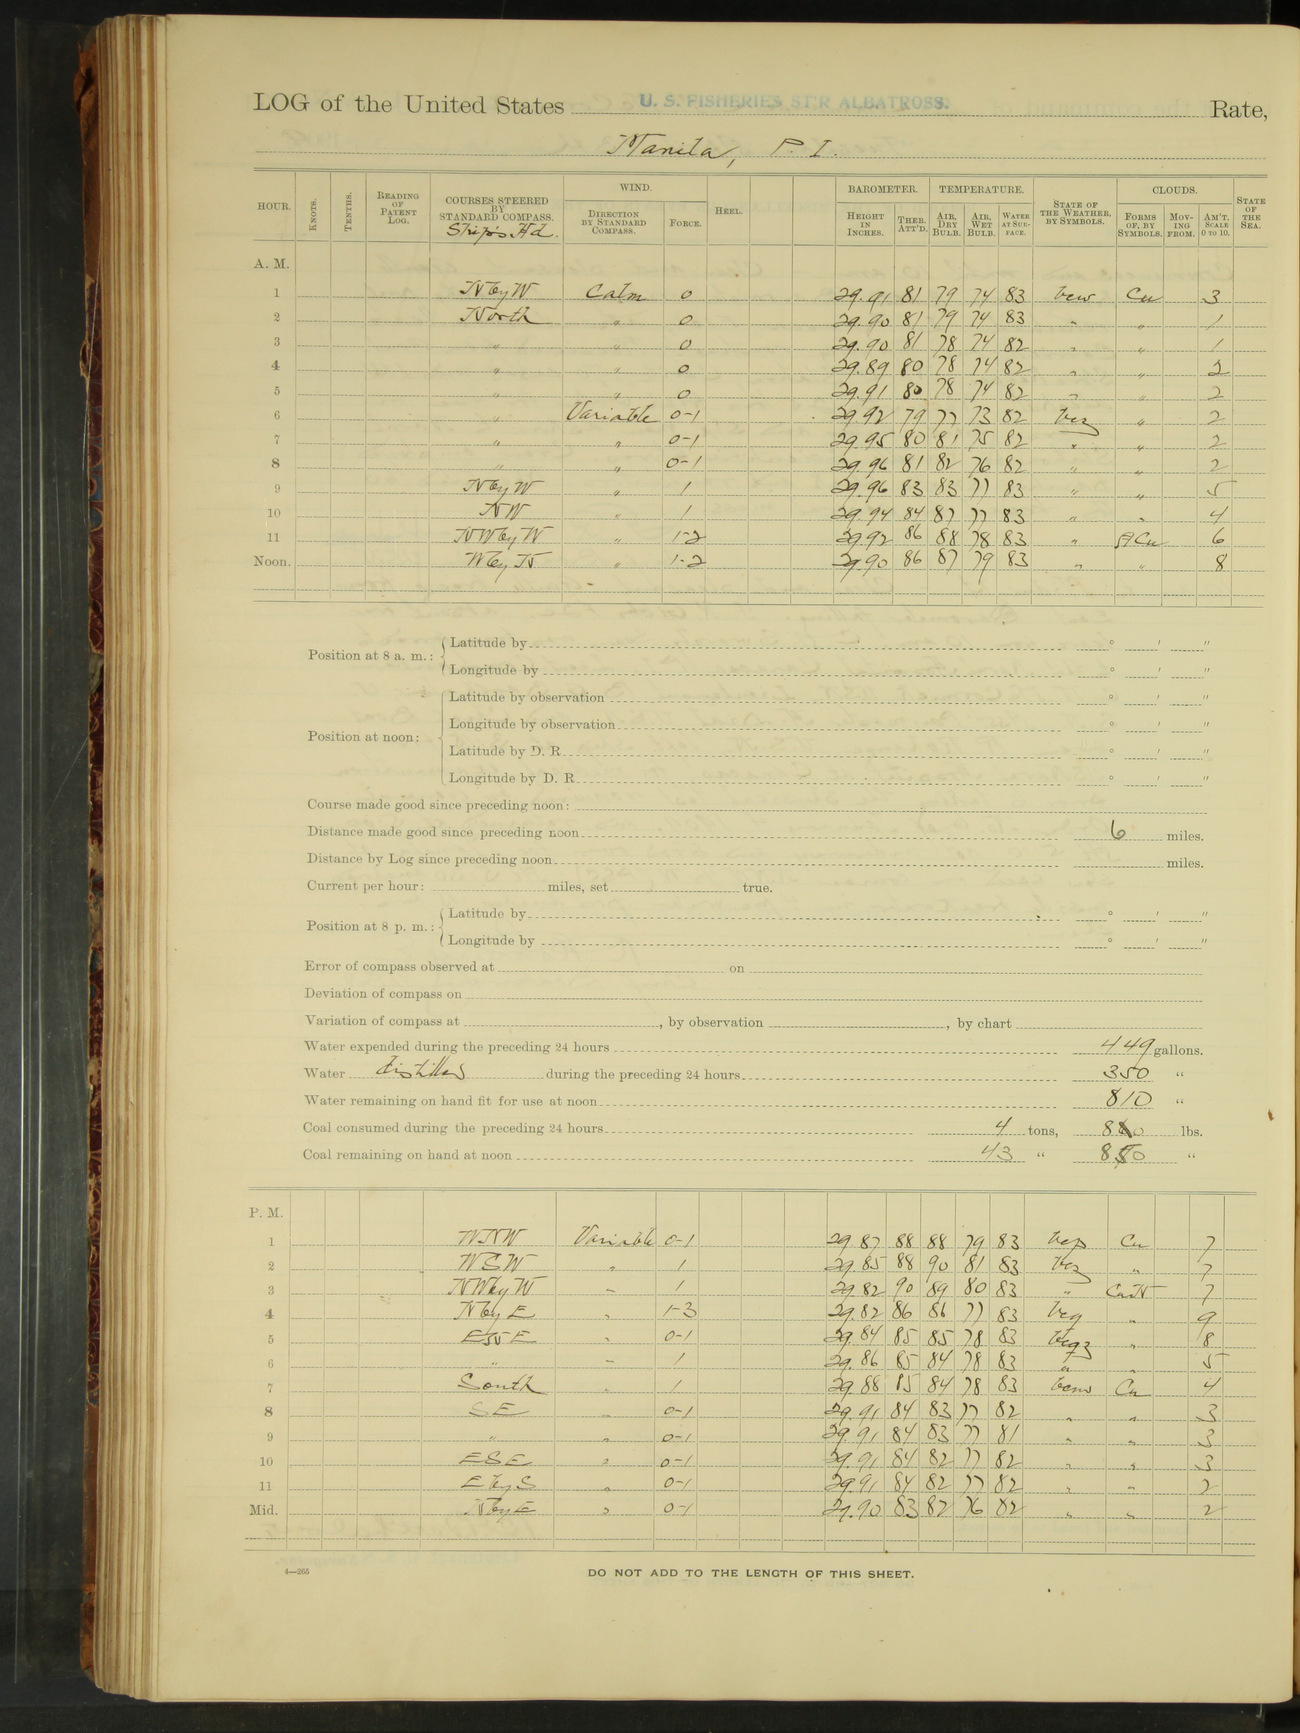 LOG of the United States U. S. FISHERIES ST'R ALBATROSS. Rate,
Manila, P. I.
HOUR. KNOTS. TENTHS. READING OF PATENT LOG. COURSES STEERED BY STANDARD COMPASS. Ship's Hd. WIND. DIRECTION BY STANDARD COMPASS. FORCE. HEEL. BAROMETER. HEIGHT IN INCHES. THER. ATT'D. TEMPERATURE. AIR, DRY BULB. AIR, WET BULB. WATER AT SURFACE. STATE OF THE WEATHER, BY SYMBOLS. CLOUDS. FORMS OF, BY SYMBOLS. MOVING FROM. AM'T. SCALE 0 TO 10. STATE OF THE SEA.
A. M.
1 NbyW Calm 0 29.91 81 79 74 83 bcw Cu 3
2 North " 0 29.90 81 79 74 83 " " 1
3 " " 0 29.90 81 78 74 82 " " 1
4 " " 0 29.89 80 78 74 82 " " 2
5 " " 0 29.91 80 78 74 82 " " 2
6 " Variable 0-1 29.92 79 77 73 82 bcz " 2
7 " " 0-1 29.95 80 81 75 82 " " 2
8 " " 0-1 29.96 81 82 76 82 " " 2
9 NbyW " 1 29.96 83 83 77 83 " " 5
10 NW " 1 29.94 84 87 77 83 " " 4
11 NWbyW " 1-2 29.92 86 88 78 83 " Cu 6
Noon. WbyN " 1-2 29.90 86 87 79 83 " " 8
Position at 8 a. m.: Latitude by ° ' "
Longitude by ° ' "
Position at noon: Latitude by observation ° ' "
Longitude by observation ° ' "
Latitude by D. R. ° ' "
Longitude by D. R. ° ' "
Course made good since preceding noon:
Distance made good since preceding noon 6 miles.
Distance by Log since preceding noon miles.
Current per hour: miles, set true.
Position at 8 p. m.: Latitude by ° ' "
Longitude by ° ' "
Error of compass observed at on
Deviation of compass on
Variation of compass at , by observation , by chart
Water expended during the preceding 24 hours 449 gallons.
Water distilled during the preceding 24 hours 350 "
Water remaining on hand fit for use at noon 810 "
Coal consumed during the preceding 24 hours 4 tons, lbs.
Coal remaining on hand at noon 43 " "
P. M.
1 WNW Variable 0-1 29.87 88 88 79 83 Cu 7
2 WSW " 1 29.85 88 90 81 83 bcz " 7
3 NWbyW " 1 29.82 90 89 80 83 " CuN 7
4 NbyE " 1-3 29.82 86 86 77 83 bcq " 9
5 ENE " 0-1 29.84 85 85 78 83 bcqz " 8
6 " " 1 29.86 85 84 78 83 " " 5
7 South " 1 29.88 85 84 78 83 Cu 4
8 SE " 0-1 29.91 84 83 77 82 " " 3
9 " " 0-1 29.91 84 83 77 81 " " 3
10 ESE " 0-1 29.91 84 82 77 82 " " 3
11 EbyS " 0-1 29.91 84 82 77 82 " " 2
Mid. NbyE " 0-1 29.90 83 82 76 82 " " 2
4—265
DO NOT ADD TO THE LENGTH OF THIS SHEET.